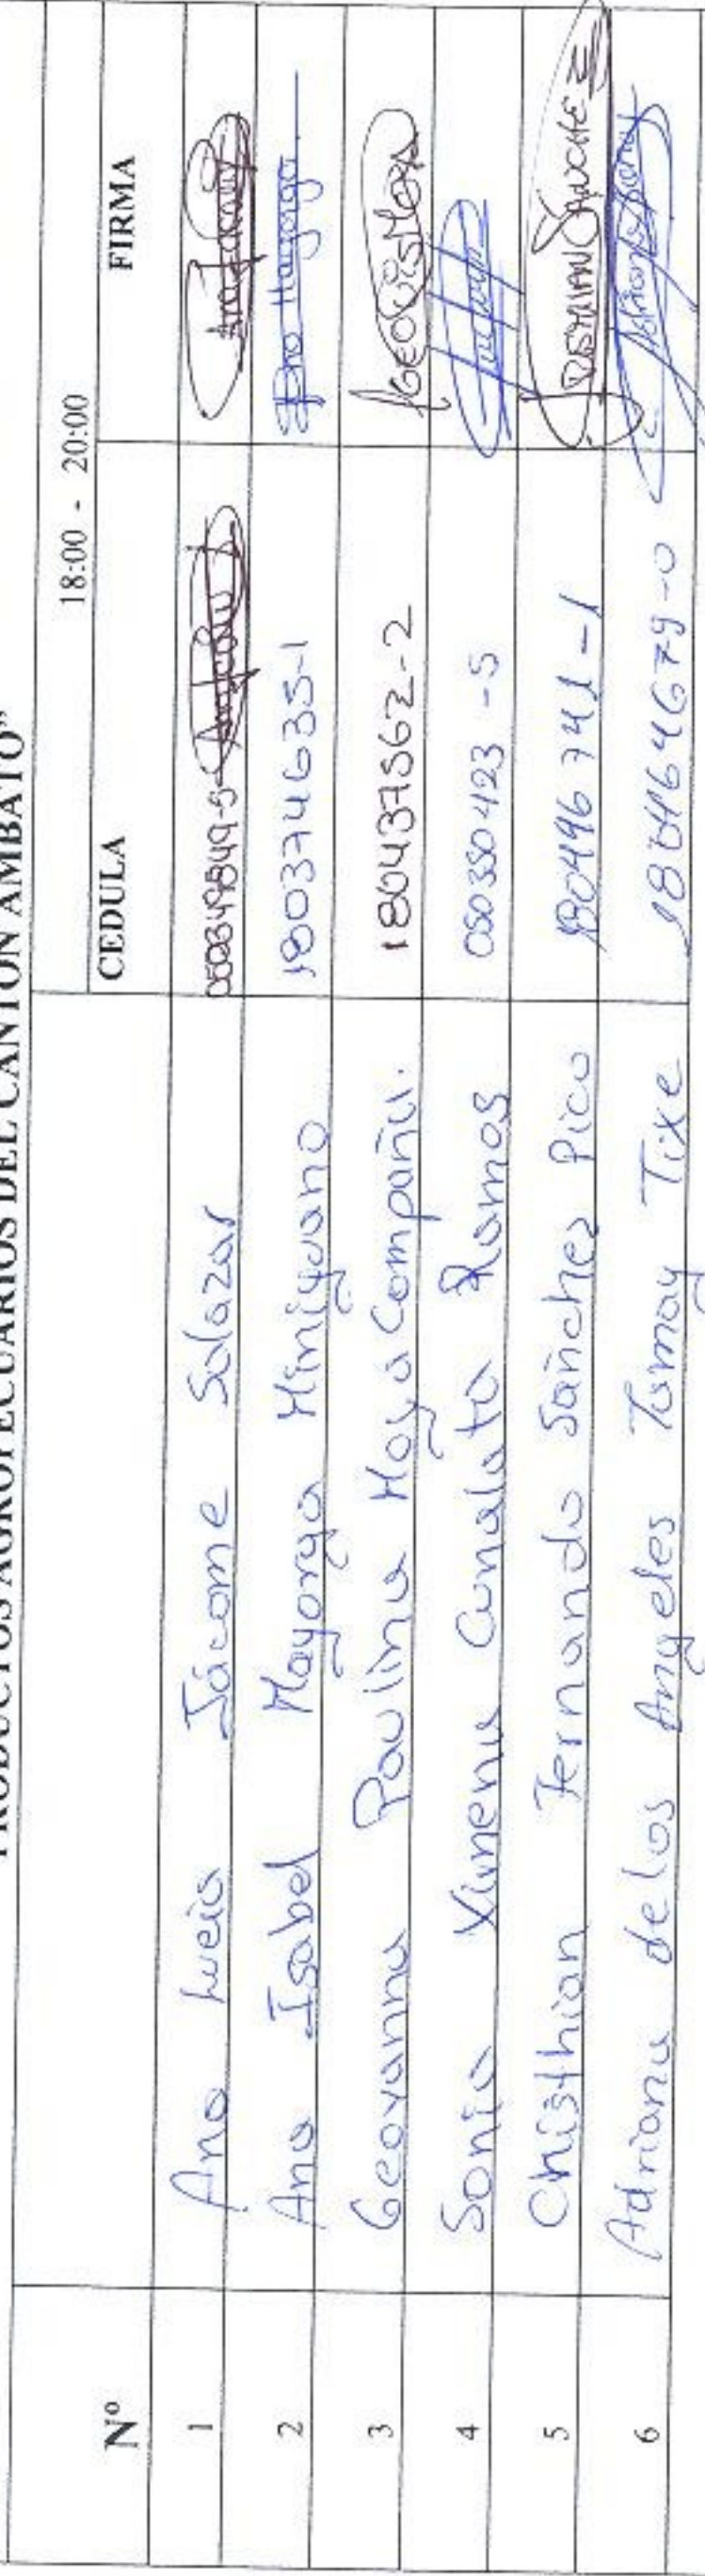 PRODUCTOS AGROPECUARIOS DEL CANTÓN AMBATO"
18:00 - 20:00
Nº CEDULA FIRMA
1 Ana Lucia Jácome Salazar 050349849-5
2 Ana Isabel Mayorga Miniguano 180374635-1 Ana Mayorga
3 Geovanna Paulina Moya Compañia. 180437562-2 GEOVISMOYA
4 Sonia Ximena Cunalata Ramos 050350423-5
5 Chisthian Fernando Sánchez Pico 180496741-1 SANCHEZ
6 Adriana delos Angeles Tamay Tixe 180464679-0